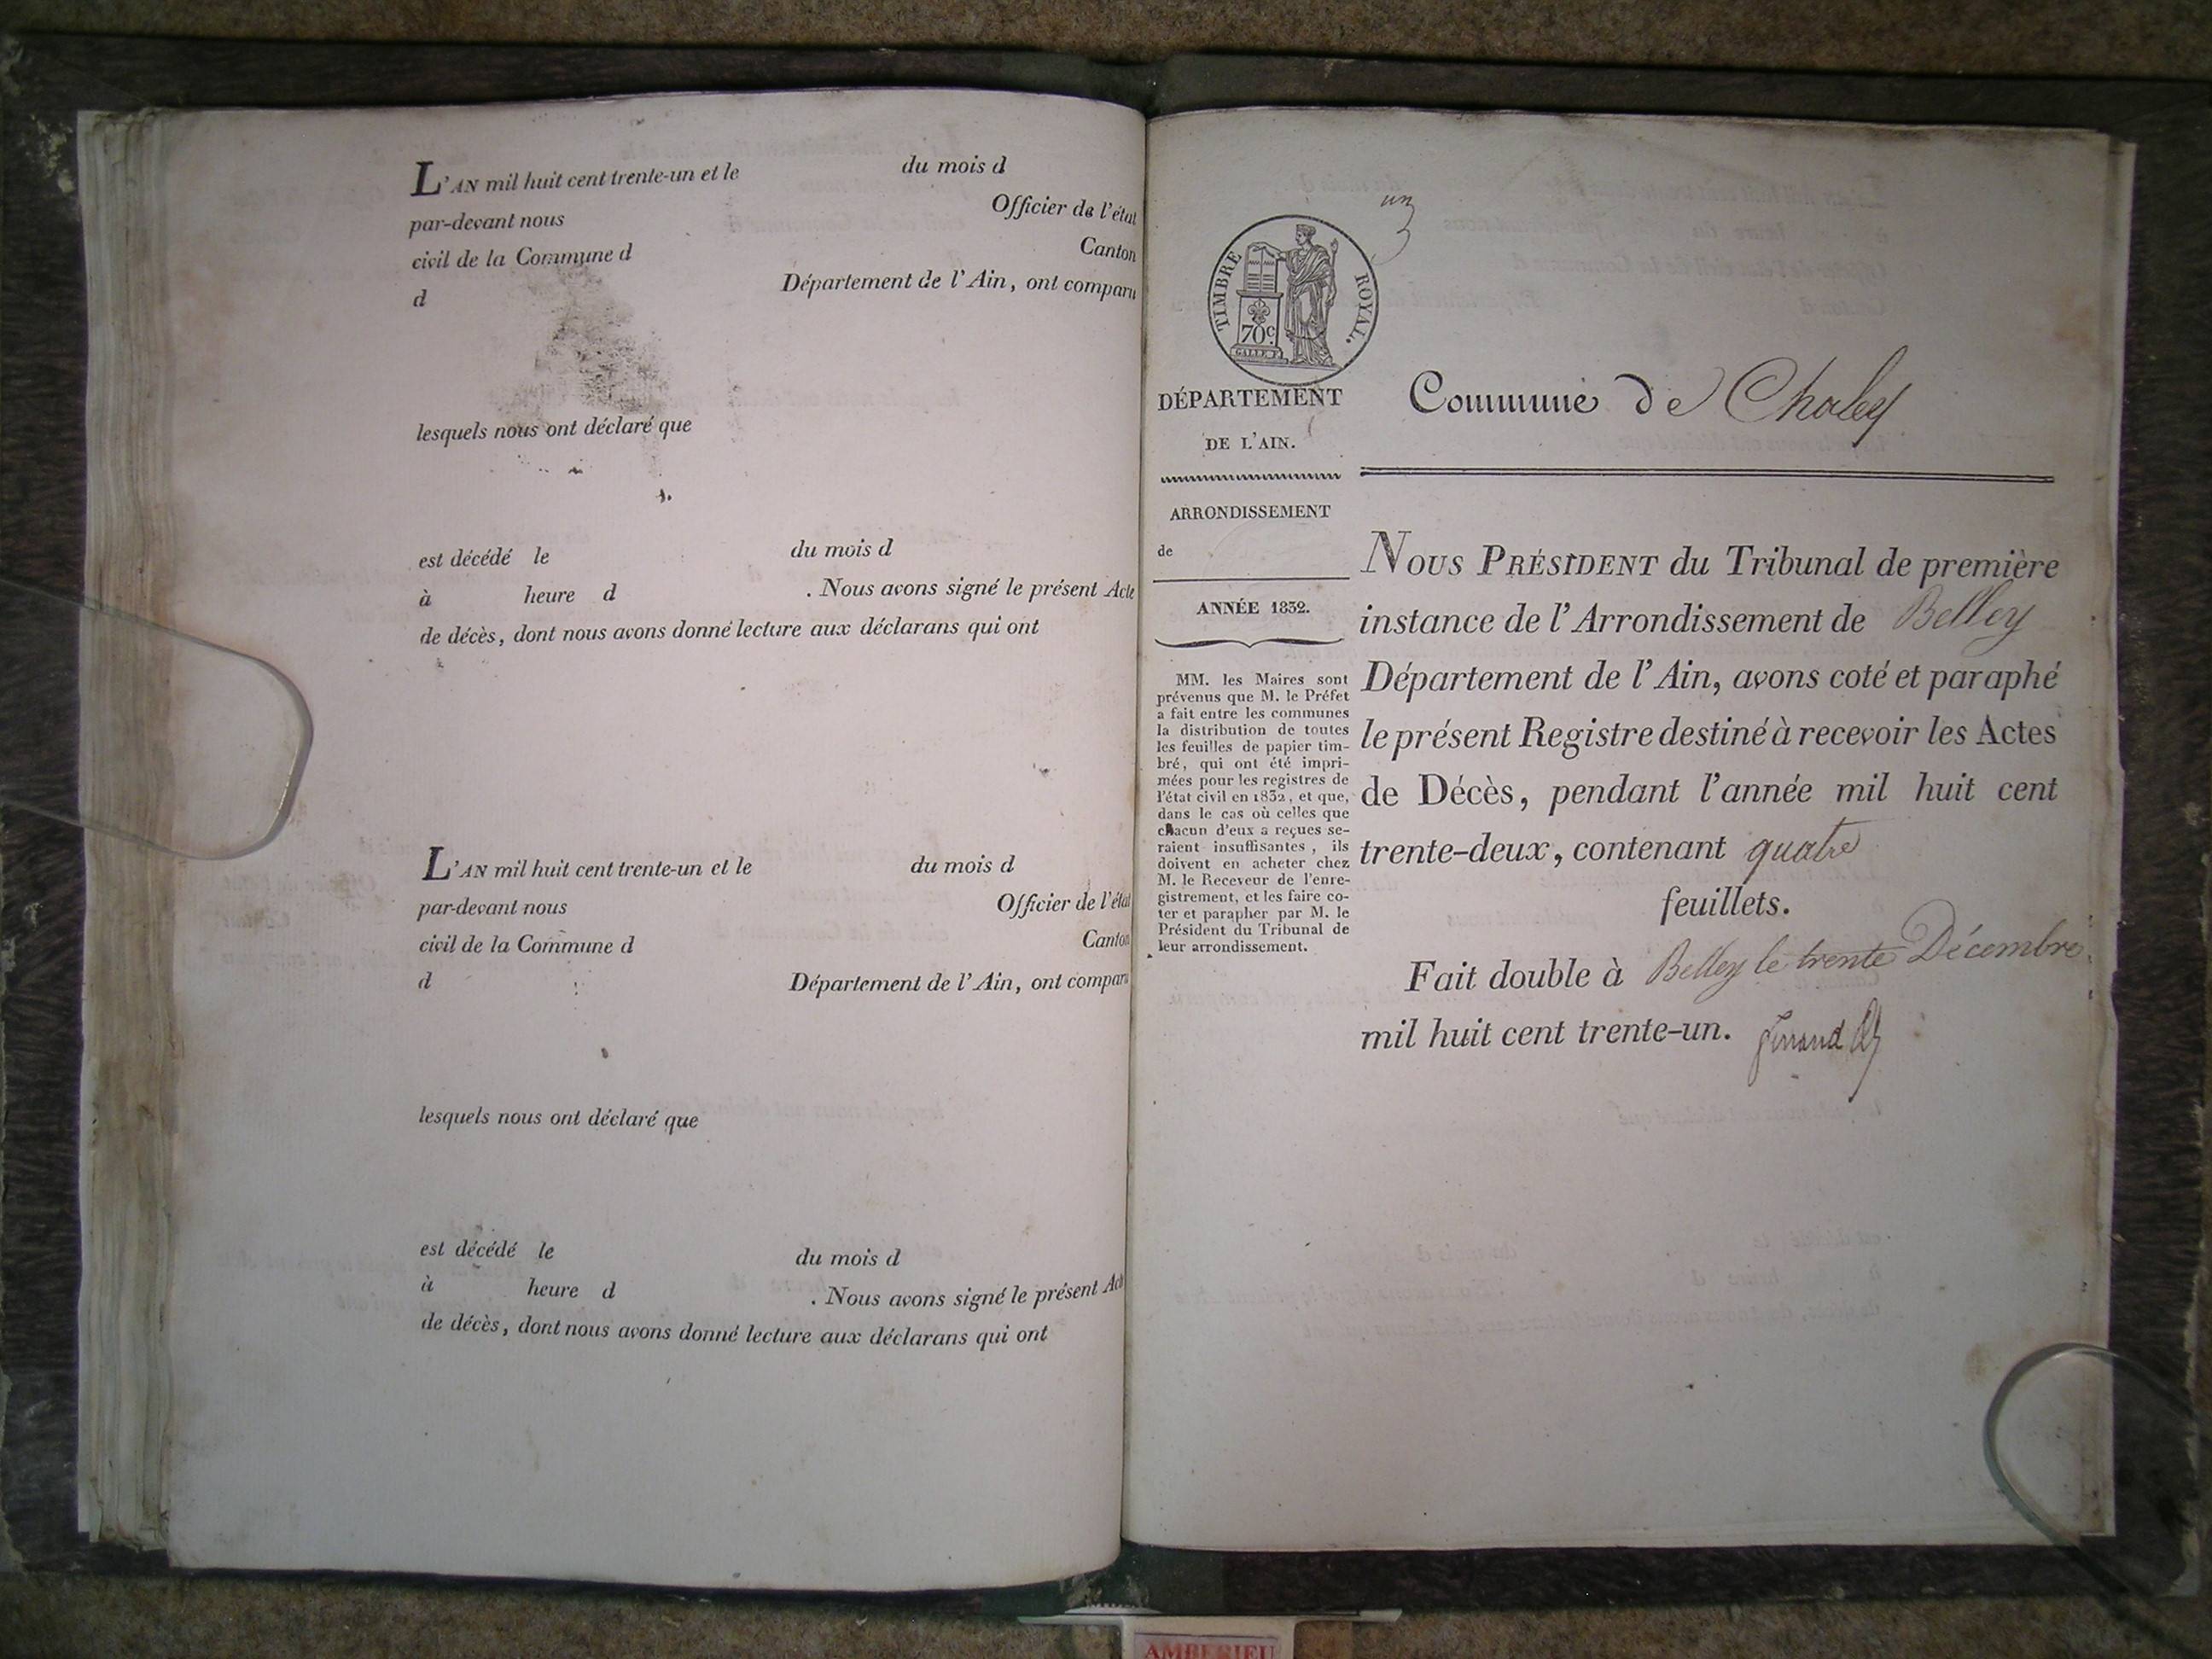 L'AN mil huit cent trente-un et le du mois d
par-devant nous Officier de l'état
civil de la Commune d Canton
d Département de l'Ain, ont comparu
lesquels nous ont déclaré que
est décédé le du mois d
à heure d . Nous avons signé le présent Acte
de décès, dont nous avons donné lecture aux déclarans qui ont
L'AN mil huit cent trente-un et le du mois d
par-devant nous Officier de l'état
civil de la Commune d Canton
d Département de l'Ain, ont comparu
lesquels nous ont déclaré que
est décédé le du mois d
à heure d . Nous avons signé le présent Act
de décès, dont nous avons donné lecture aux déclarans qui ont
un
TIMBRE ROYAL.
70c.
GALLE F.
DÉPARTEMENT
DE L'AIN.
ARRONDISSEMENT
de
ANNÉE 1832.
MM. les Maires sont
prévenus que M. le Préfet
a fait entre les communes
la distribution de toutes
les feuilles de papier tim-
bré, qui ont été impri-
mées pour les registres de
l'état civil en 1832, et que,
dans le cas où celles que
chacun d'eux a reçues se-
raient insuffisantes, ils
doivent en acheter chez
M. le Receveur de l'enre-
gistrement, et les faire co-
ter et parapher par M. le
Président du Tribunal de
leur arrondissement.
Commune de Chaley
NOUS PRÉSIDENT du Tribunal de première
instance de l'Arrondissement de Belley
Département de l'Ain, avons coté et paraphé
le présent Registre destiné à recevoir les Actes
de Décès, pendant l'année mil huit cent
trente-deux, contenant quatre
feuillets.
Fait double à Belley le trente Décembre
mil huit cent trente-un.
AMBERIEU